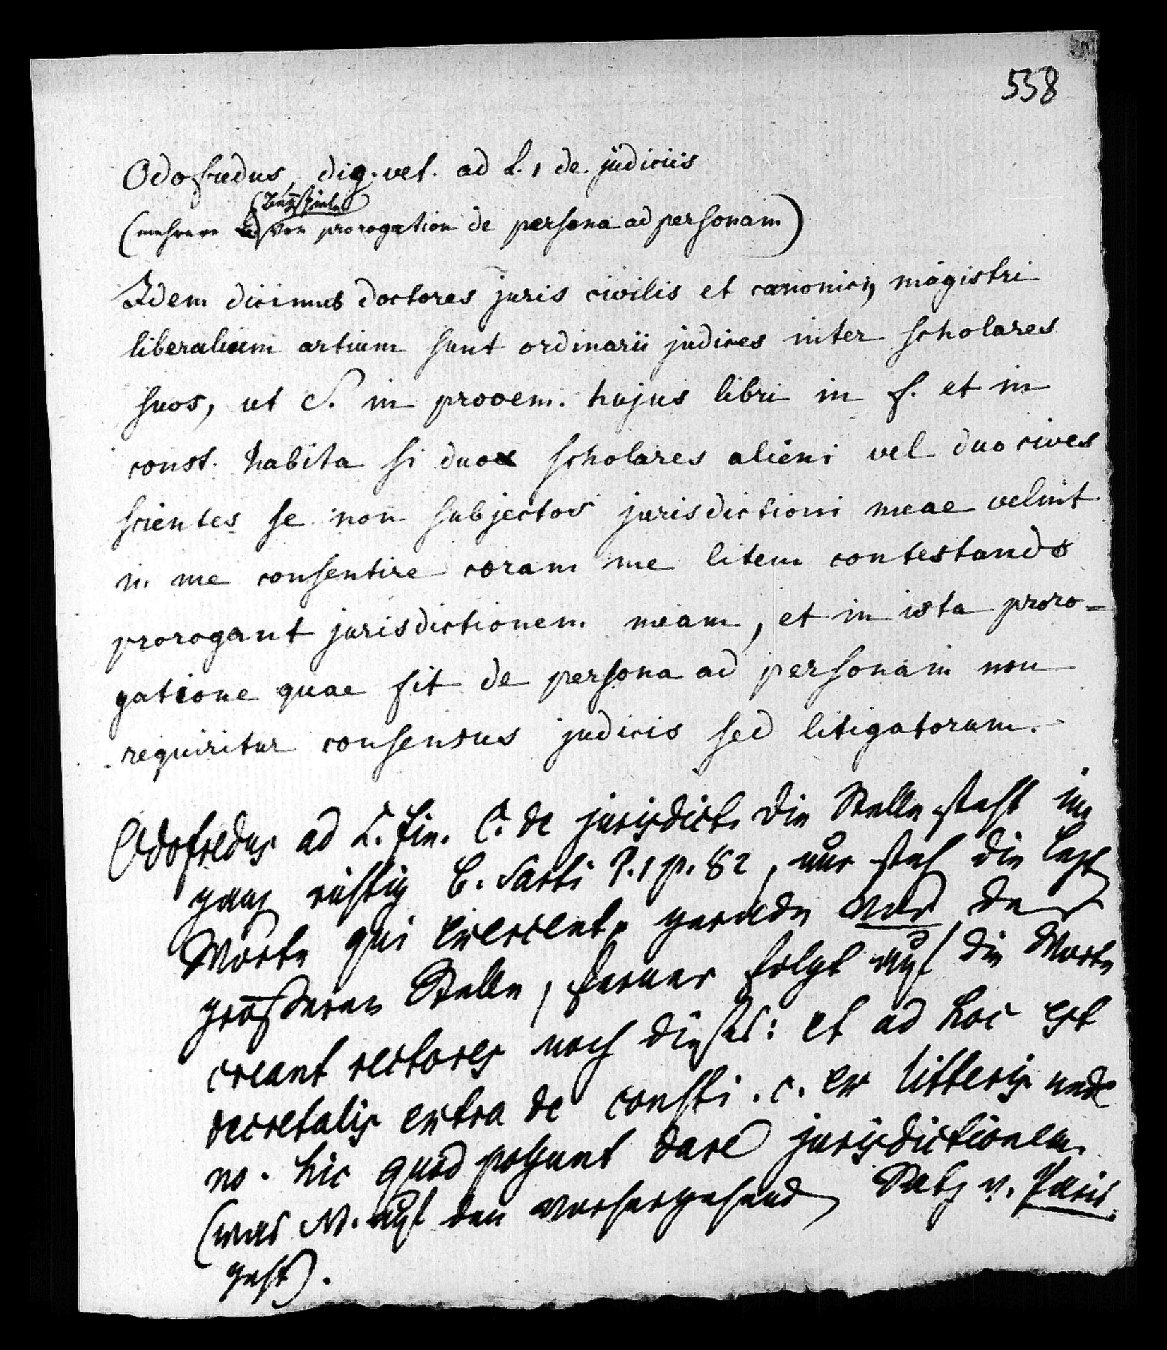 558
Odofredus dig. vet. ad L. 1 de judiciis
Beyspiele
(mehrere von prorogation de persona ad personam)
Idem dicimus doctores juris civilis et canonici, magistri
liberalium artium sunt ordinarii judices inter scholares
suos, ut S. in prooem. hujus libri in f. et in
const. habita si duo scholares alieni vel duo cives
scientes se non subjectos jurisdictioni meae velint
in me consentire coram me litem contestando
prorogant jurisdictionem meam, et in ista proro-
gatione quae fit de persona ad personam non
requiritur consensus judicis sed litigatorum.
Odofredus ad L. fin. C. de jurisdict. Die Stelle steht im
ganz richtig b. Sarti P. 1 p. 82, nur steh die letzt
Worte qui exercent gerade vor der
größeren Stelle, ferner folgt auf die Worte
creant rectores noch dieses: et ad hoc est
decretalis extra de consti. c. ex litteris unde
no. hic quod possunt dare jurisdictionem
(was N. auf den vorhergehend Satz v. Paris
geht).